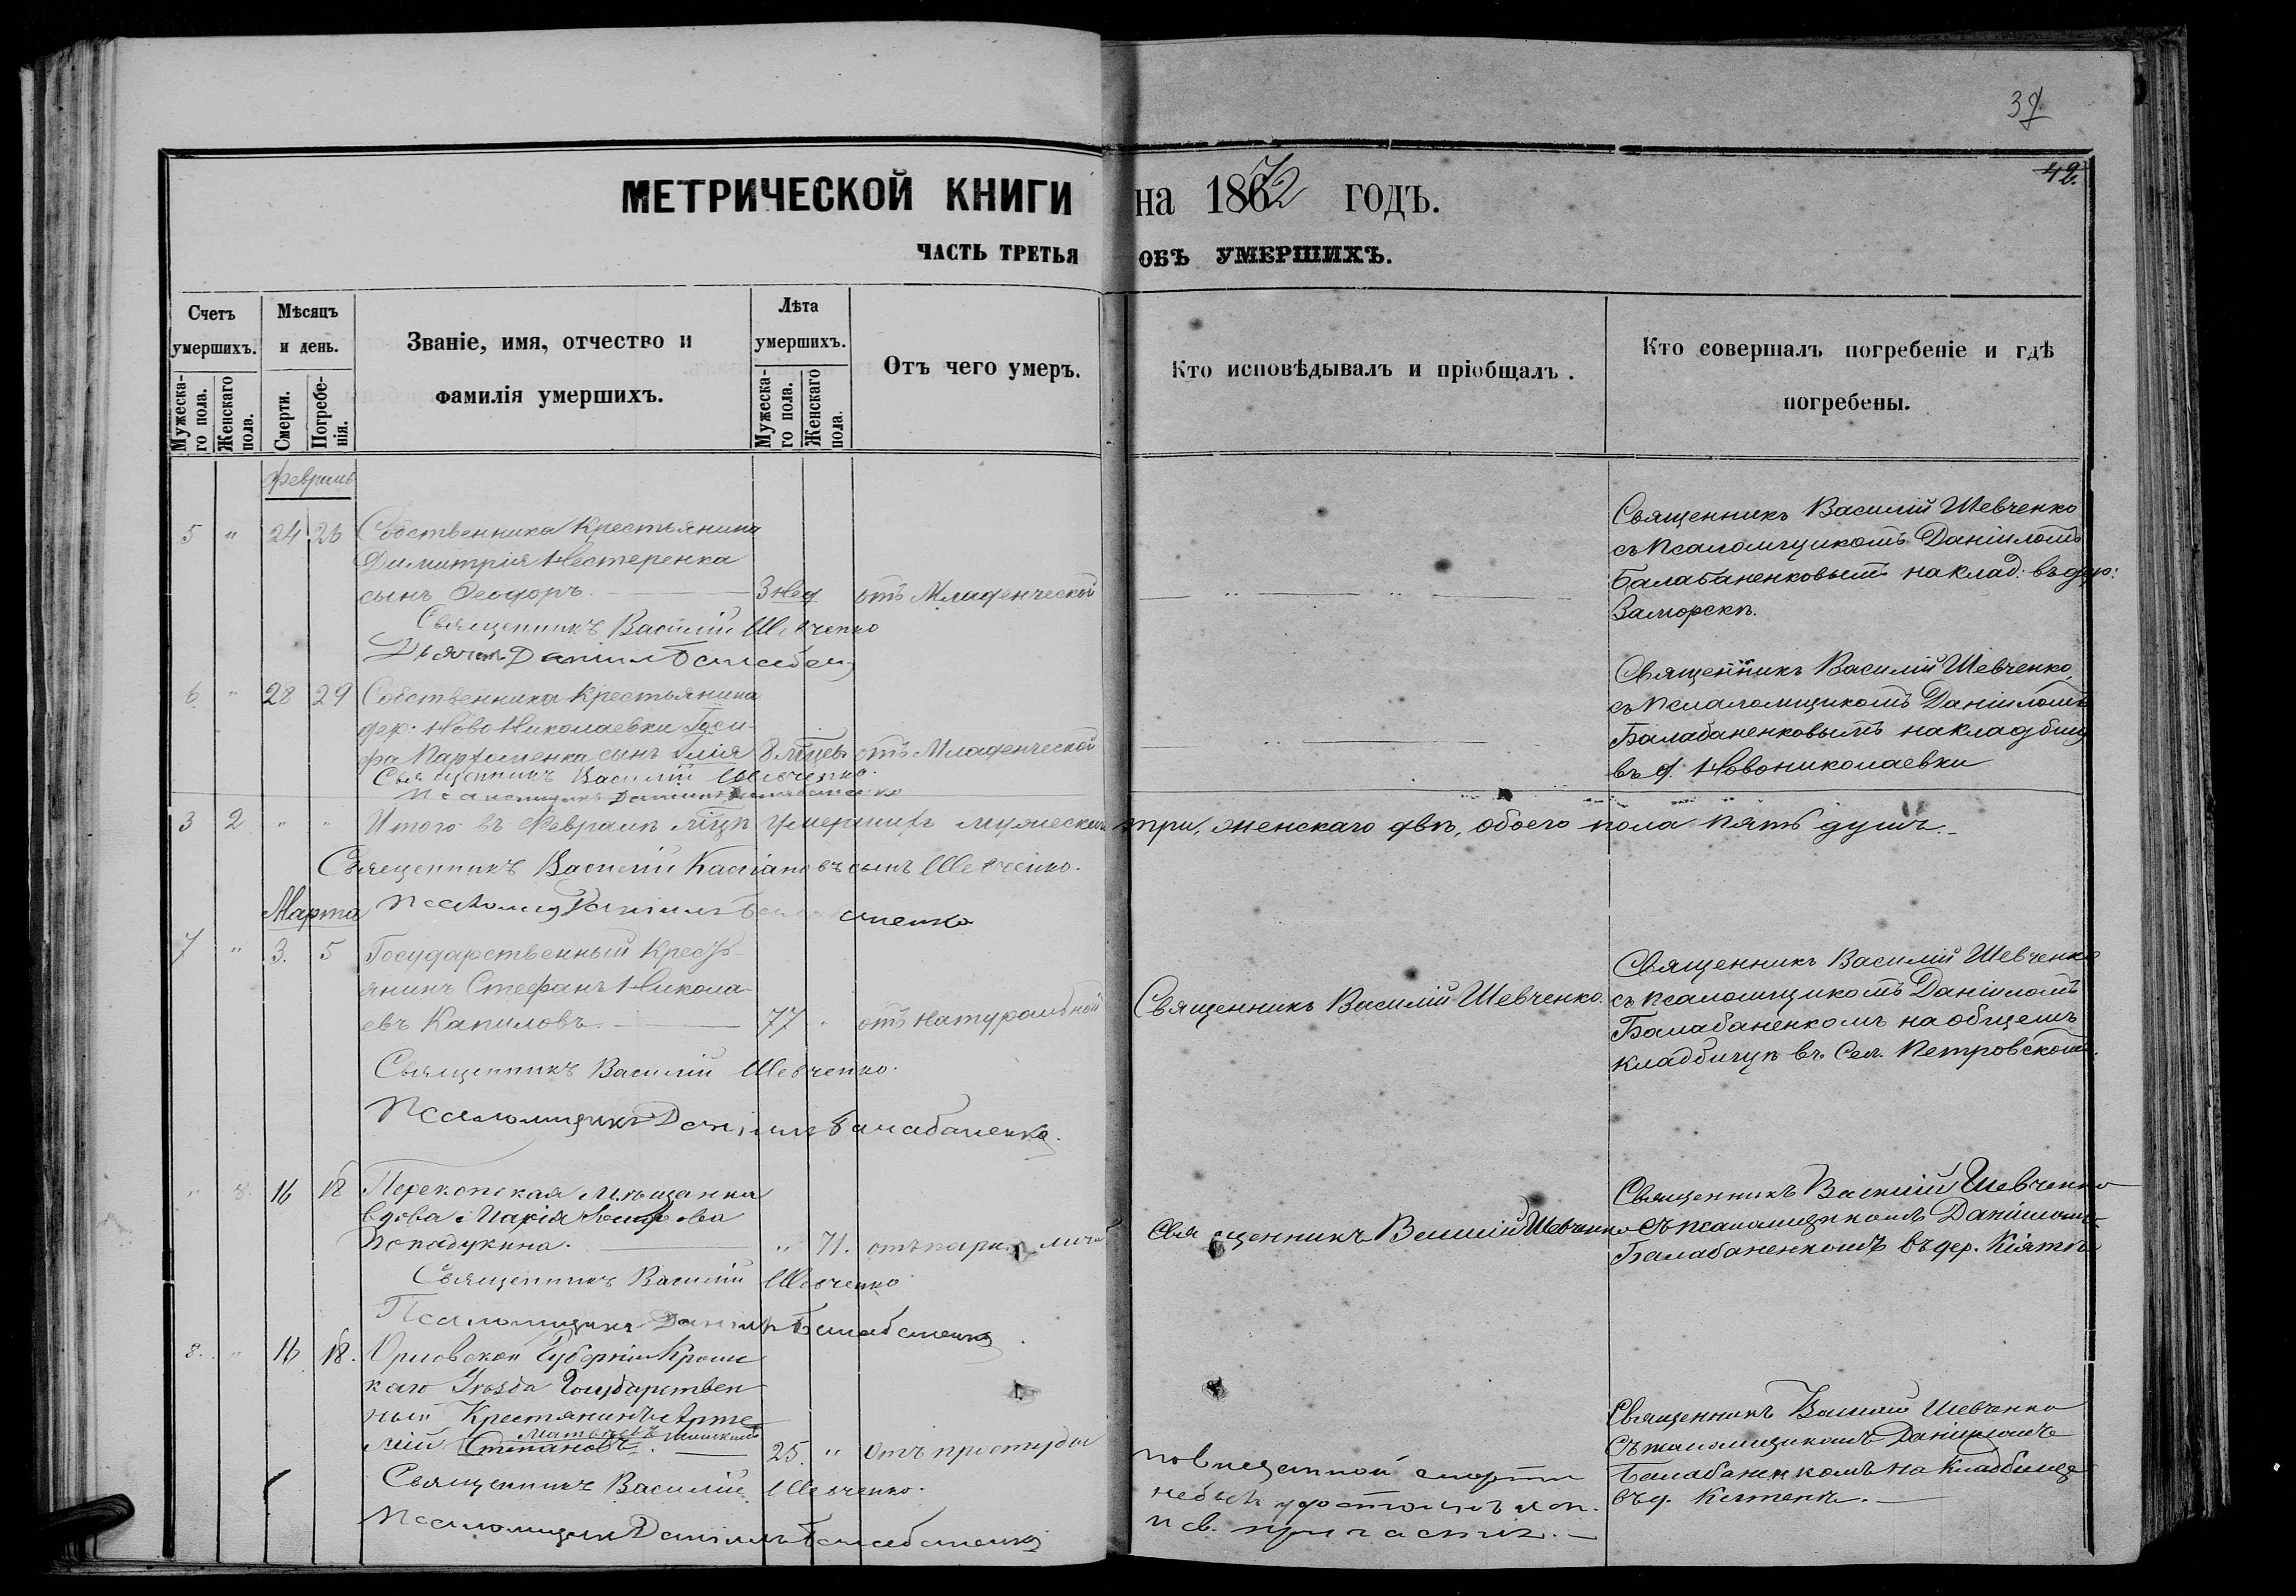 37
42.
МЕТРИЧЕСКОЙ КНИГИ на 1872 годъ.
ЧАСТЬ ТРЕТЬЯ ОБЪ УМЕРШИХЪ.
Счетъ умершихъ.
Мужескаго пола.
Женскаго пола.
Мѣсяцъ и день.
Смерти.
Погребенія.
Званіе, имя, отчество и
фамилія умершихъ.
Лѣта умершихъ.
Мужескаго пола.
Женскаго пола.
Отъ чего умеръ.
Кто исповѣдывалъ и пріобщалъ.
Кто совершалъ погребеніе и гдѣ
погребены.
Февраль
5 " 24 26 Собственника Крестьянина
Димитрія Нестеренка
сынъ Ѳеодоръ. 3 нед отъ Младенческой
Священникъ Василій Шевченко
съ псаломщикомъ Даніиломъ
Балабаненковымъ на клад: въ дер:
Заморскѣ.
Священникъ Василій Шевченко
Даніилъ
6. " 28 29 Собственника Крестьянина
дер. Новониколаевки Іоси-
фа Парѳоменка сынъ Илія 8 мѣцев отъ Младенческой
Священникъ Василій Шевченко,
съ псаломщикомъ Даніиломъ
Балабаненковымъ на кладбищ
въ д. Новониколаевки
Священникъ Василій Шевченко.
Псаломщикъ Даніилъ Балабаненко
3 2 " " Итого въ Февралѣ мѣцѣ умершихъ мужескаго три, женскаго двѣ, обоего пола пять душъ.
Священникъ Василій Кассіановъ сынъ Шевченко.
Псаломщ Даніилъ
Марта
7 " 3. 5 Государственный Кресть-
янинъ Стефанъ Никола-
евъ Капиловъ. 77 " отъ натуральной
Священникъ Василій Шевченко.
Священникъ Василій Шевченко
съ псаломщикомъ Даніиломъ
Балабаненкомъ на общемъ
кладбищѣ въ Сел. Петровскомъ.
Священникъ Василій Шевченко.
Псаломщикъ Даніилъ Балабаненко.
" 8. 16 18 Перекопская Мѣщанка
вдова Марія
Попадукина. " 71.
Священникъ Василій Шевченко
Священникъ Василій Шевченко
съ псаломщикомъ Даніиломъ
Балабаненкомъ въ дер. Кіятъ
Священникъ Василій Шевченко
Псаломщикъ Даніилъ Балабаненко.
8. " 16 18. Орловской Губерніи Кром
каго Уѣзда Государствен-
ный Крестянинъ Арте-
Матвѣевъ
мій Степановъ. 25. " Отъ простуды
по внезапной смерти
небылъ удостоенъ
и св. причастія.
Священникъ Василій Шевченко
съ псаломщикомъ Даніиломъ
Балабаненкомъ на Кладбище
въ д.
Священникъ Василій Шевченко.
Псаломщикъ Даніилъ Балабаненко